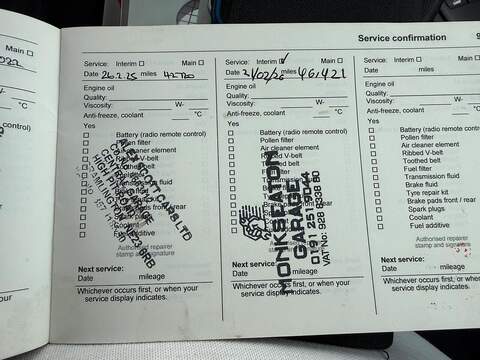 Service confirmation
9
Main ☐
2022
control)
rear
your
Service: Interim ☐ Main ☐
Date 26.2.25 miles
Engine oil
Quality:
Viscosity: W-
Anti-freeze, coolant °C
Yes
☐ Battery (radio remote control)
☐ Pollen filter
☐ Air cleaner element
☐ Ribbed V-belt
☐ Toothed belt
☐ Fuel filter
Transmission fluid
Brake fluid
Brake pads front / rear
Coolant
Fuel additive
Authorised repairer
stamp and signature
ALEX SCOTT CARS LTD
CENTRE GARAGE
HIGH
Next service:
Date mileage
Whichever occurs first, or when your
service display indicates.
Service: Interim ☑ Main ☐
Date 2/02/26 miles 46,421
Engine oil
Quality:
Viscosity: W-
Anti-freeze, coolant °C
Yes
☐ Battery (radio remote control)
☐ Pollen filter
☐ Air cleaner element
☐ Ribbed V-belt
☐ Toothed belt
Brake pads front / rear
Authorised repairer
stamp and signature
MONKSEATON
GARAGE
0191 251 9044
VAT No: 928 8338 80
Next service:
Date mileage
Whichever occurs first, or when your
service display indicates.
Service: Interim ☐ Main ☐
Date miles
Engine oil
Quality:
Viscosity: W-
Anti-freeze, coolant °C
Yes
☐ Battery (radio remote control)
☐ Pollen filter
☐ Air cleaner element
☐ Ribbed V-belt
☐ Toothed belt
☐ Fuel filter
☐ Transmission fluid
☐ Brake fluid
☐ Tyre repair kit
☐ Brake pads front / rear
☐ Spark plugs
☐ Coolant
☐ Fuel additive
Authorised repairer
stamp and signature
Next service:
Date mileage
Whichever occurs first, or when your
service display indicates.